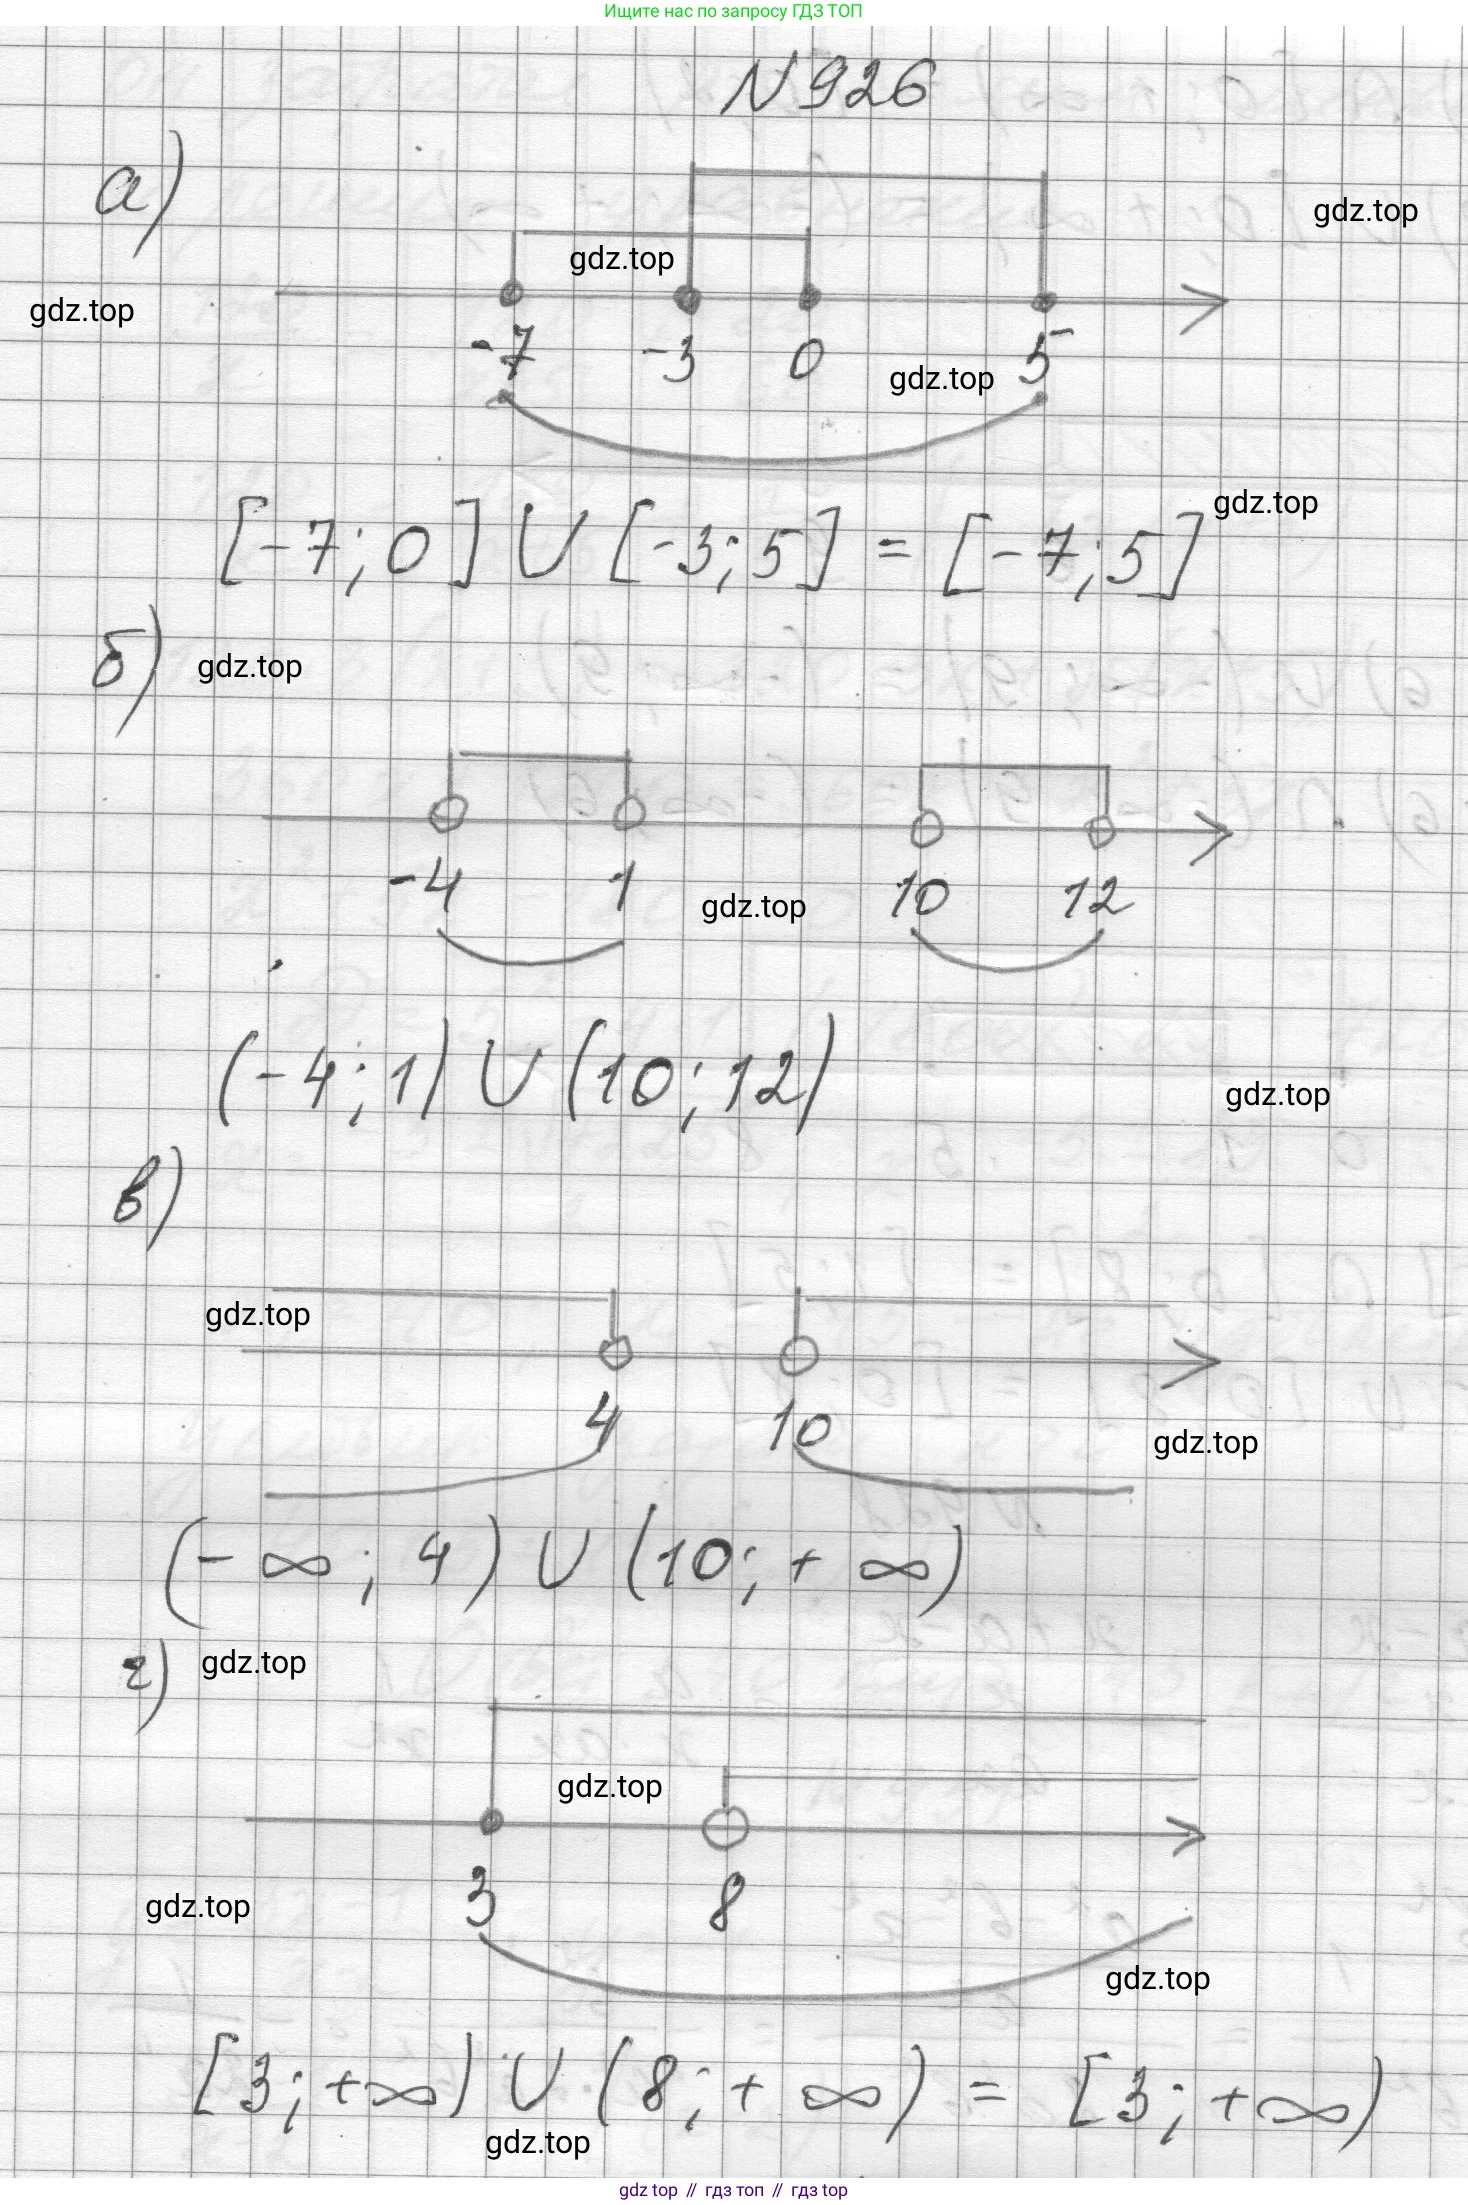 Ищите нас по запросу ГДЗ ТОП
N 926
а)
gdz.top
gdz.top
gdz.top
-7 -3 0 5
gdz.top
[-7; 0] ∪ [-3; 5] = [-7; 5]
gdz.top
б)
gdz.top
-4 1 10 12
gdz.top
(-4; 1) ∪ (10; 12)
gdz.top
в)
gdz.top
4 10
gdz.top
(-∞; 4) ∪ (10; +∞)
г)
gdz.top
gdz.top
3 8
gdz.top
gdz.top
[3; +∞) ∪ (8; +∞) = [3; +∞)
gdz.top
gdz top // гдз топ // гдз top